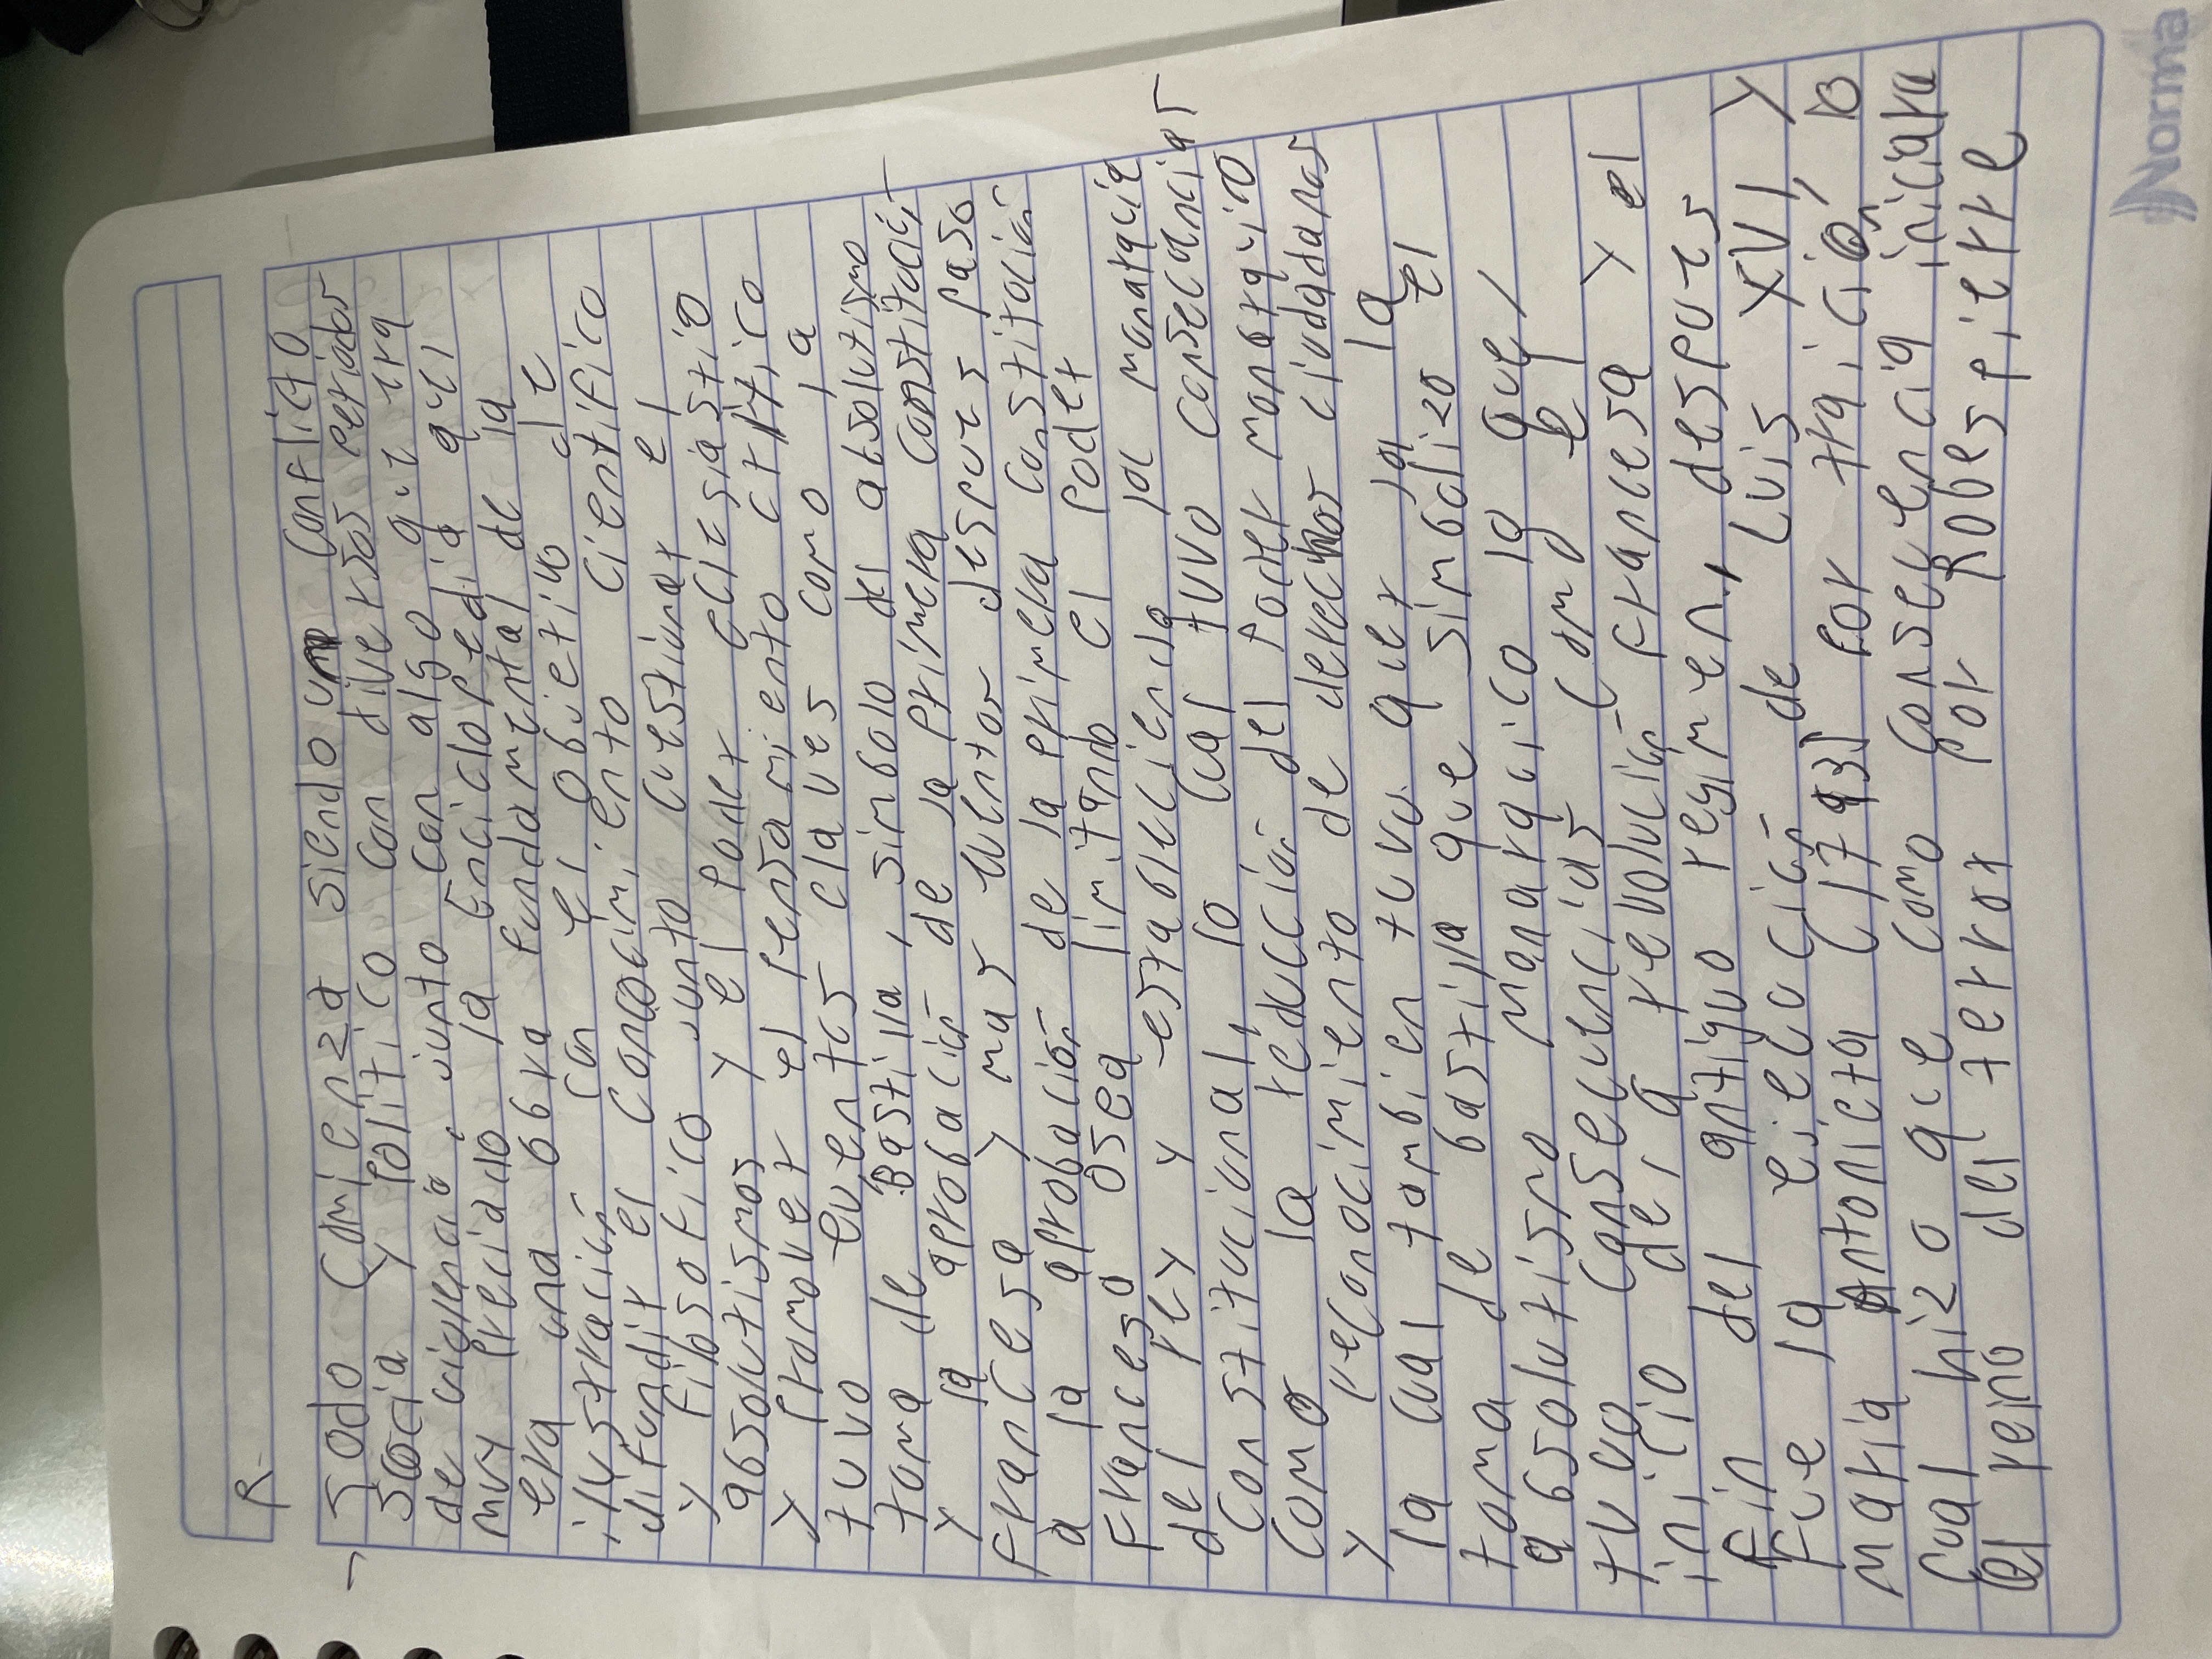 R-
→ Sodo Comienza siendo un Conflicto
social y politico con diversos periodos
de violencia, junto con algo que era
muy preciado la Enciclopedia que
era una obra fundamental de la
ilustración con el objetivo de
difundir el conocimiento cientifico
y filosofico junto cuestionar el
absolutismos y el poder eclesiastico
y promover el pensamiento critico
tuvo eventos claves como la
toma de Bastilla, simbolo del absolutismo
y la aprobación de la primera constitución
francesa y mas eventos despues paso
a la aprobación de la primera constitución
francesa osea limitando el poder
del rey y estableciendo la monarquia
constitucional, lo cual tuvo consecuencias
como la reducción del poder monarquico
y reconocimiento de derechos ciudadanos
la cual tambien tuvo que ver la
toma de bastilla que simbolizo el
absolutismo monarquico la que
tuvo consecuencias como el
inicio de la revolución francesa y el
fin del antiguo regimen, despues
fue la ejecución de Luis XVI y
maria Antonieta (1793) por traición, lo
cual hizo que como consecuencia iniciara
el reino del terror por Robespierre
Norma